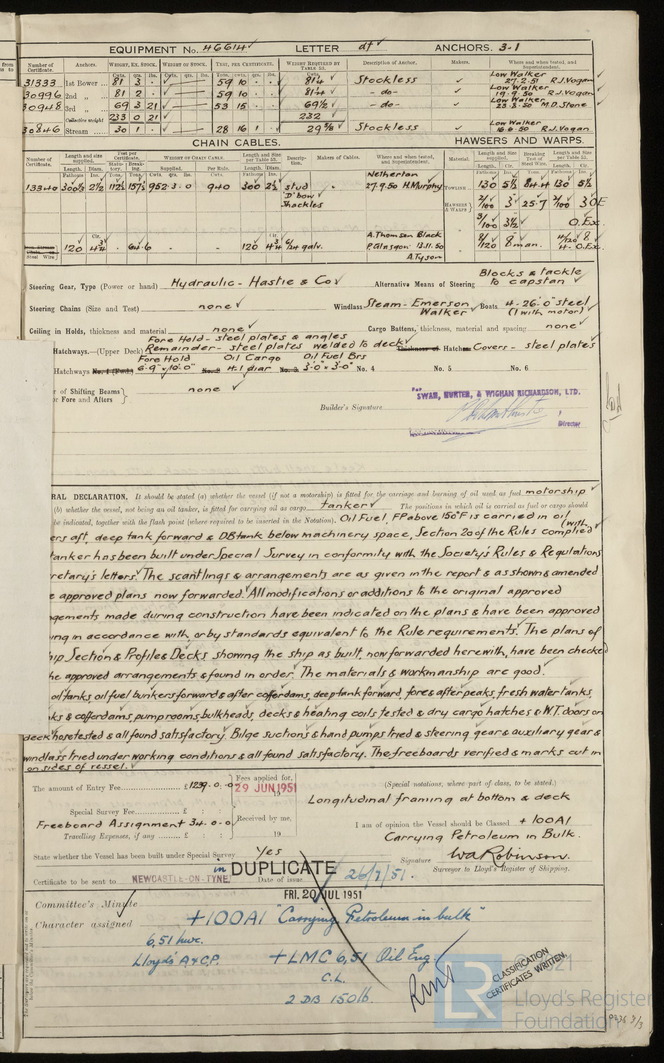 EQUIPMENT No. 46614 LETTER df ANCHORS. 3-1
Number of Certificate. Anchors. Weight, Ex. Stock. Weight of Stock. Test, per Certificate. Weight Required by Table 53. Description of Anchor. Makers. Where and when tested, and Superintendent.
Cwts. qrs. lbs. Cwts. qrs. lbs. Tons. Cwts. qrs. lbs. Cwts.
31333 1st Bower 81 3 . 59 10 . . 81¼ Stockless Low Walker 27.2.51 R.J. Vogan
30996 2nd " 81 2 . 59 10 . . 81¼ -do- Low Walker 19.9.50 R.J. Vogan
30948 3rd " 69 3 21 53 15 . . 69½ -do- Low Walker 23.3.50 M.D. Stone
Collective weight 233 0 21 232
30846 Stream 30 1 . 28 16 1 . Stockless Low Walker R.J. Vogan
CHAIN CABLES. HAWSERS AND WARPS.
Number of Certificate. Length and size supplied. Test per Certificate. Weight of Chain Cable. Length and Size per Table 53. Description. Makers of Cables. Where and when tested, and Superintendent. Material. Length and Size supplied. Breaking Test of Steel Wire. Length and Size per Table 53.
Netherton
13340 300½ 2½ 112½ 157½ 952.3.0 940 300 2½ stud 27.9.50 H. Murphy Towline 130 5½ 84.4 130 5½
D'bow
shackles
Hawsers & Warps 2/100 3 25.7 2/100 3 OE
3/100 3½ O.Ex.
A. Thomson Black
Steel Wire 120 4¾ . 64.6 120 4¾ 6/24 galv. P. Glasgow 13.11.50 8/120 8 man. 4/120 8
A. Tyson 4. O.Ex.
Steering Gear, Type (Power or hand) Hydraulic - Hastie & Co Alternative Means of Steering Blocks & tackle to capstan
Steering Chains (Size and Test) none Windlass Steam - Emerson Walker Boats 4-26'0" steel (1 with motor)
Ceiling in Holds, thickness and material none Cargo Battens, thickness, material and spacing none
Fore Hold - steel plates & angles
Hatchways.—(Upper Deck) Remainder - steel plates welded to deck Thickness of Hatch Covers - steel plates
Fore Hold Oil Cargo Oil Fuel Brs
Hatchways No. 1 (Fwd.) 6'9" × 10'0" No. 2 4'1 diar No. 3 3'0" × 3'0" No. 4 No. 5 No. 6
of Shifting Beams
Fore and Afters none
For SWAN, HUNTER, & WIGHAM RICHARDSON, LTD.
Builder's Signature
Director
RAL DECLARATION. It should be stated (a) whether the vessel (if not a motorship) is fitted for the carriage and burning of oil used as fuel motorship
(b) whether the vessel, not being an oil tanker, is fitted for carrying oil as cargo tanker The positions in which oil is carried as fuel or cargo should
be indicated, together with the flash point (where required to be inserted in the Notation). Oil Fuel, FP above 150°F is carried in oil
ers aft, deep tank forward & DB tank below machinery space, Section 20 of the Rules complied (with
tanker has been built under Special Survey in conformity with the Society's Rules & Regulations
retary's letters. The scantlings & arrangements are as given in the report & as shown & amended
e approved plans now forwarded. All modifications or additions to the original approved
ngements made during construction have been indicated on the plans & have been approved
ing in accordance with, or by standards equivalent to the Rule requirements. The plans of
hip Section & Profile & Decks showing the ship as built, now forwarded herewith, have been checked
he approved arrangements & found in order. The materials & workmanship are good.
oil tanks, oil fuel bunkers forward & after cofferdams, deep tank forward, fore & after peaks, fresh water tanks,
ks & cofferdams, pump rooms, bulkheads, decks & heating coils tested & dry cargo hatches & W.T. doors on
deck hose tested & all found satisfactory. Bilge suctions & hand pumps tried & steering gear & auxiliary gear &
windlass tried under working conditions & all found satisfactory. The freeboards verified & marks cut in
on sides of vessel.
The amount of Entry Fee £1239.0.0 Fees applied for, 29 JUN 1951
(Special notations, where part of class, to be stated.)
Longitudinal framing at bottom & deck
Special Survey Fee £ : :
Freeboard Assignment 34.0.0 Received by me,
I am of opinion the Vessel should be Classed +100A1
Travelling Expenses, if any £ : : 19
Carrying Petroleum in Bulk.
State whether the Vessel has been built under Special Survey Yes
Signature W.A. Robinson.
Surveyor to Lloyd's Register of Shipping.
in DUPLICATE
Certificate to be sent to NEWCASTLE-ON-TYNE Date of issue 26/7/51.
FRI. 20 JUL 1951
Committee's Minute
Character assigned +100A1 "Carrying Petroleum in bulk"
6,51 Nwc.
Lloyd's A & C.P. +LMC 6,51 Oil Eng.
C.L.
2 DB 150 lb.
CLASSIFICATION CERTIFICATES WRITTEN.
LR
Lloyd's Register
Foundation